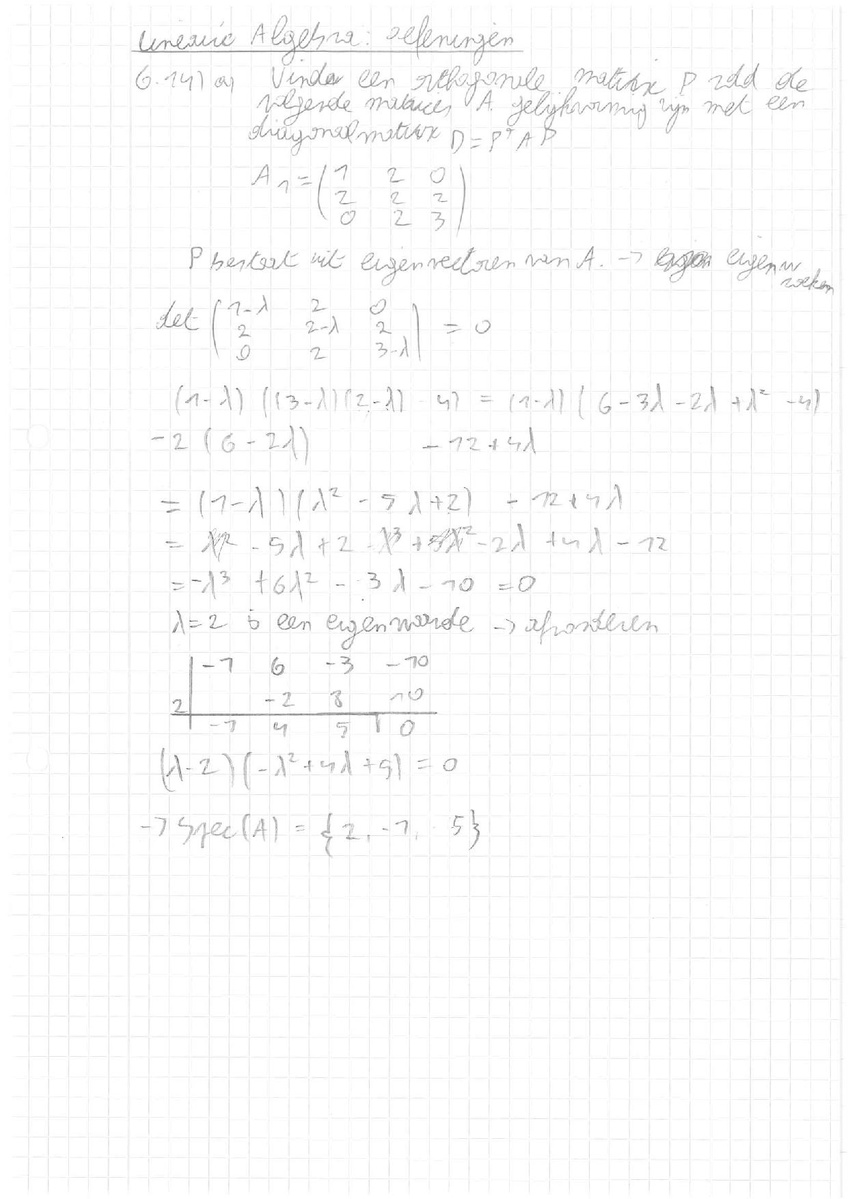 Lineaire Algebra: oefeningen
6.14) a) Vind een orthogonale matrix P zdd de
volgende matrices A gelijkvormig zijn met een
diagonaalmatrix D = Pᵀ A P
A₁ = ( 1 2 0
2 2 2
0 2 3 )
P bestaat uit eigenvectoren van A. → eigenw
zoeken
det ( 1-λ 2 0
2 2-λ 2
0 2 3-λ ) = 0
(1-λ) ((3-λ)(2-λ) - 4) = (1-λ) ( 6 - 3λ - 2λ + λ² - 4)
-2 (6 - 2λ) - 12 + 4λ
= (1-λ) (λ² - 5λ + 2) - 12 + 4λ
= λ² - 5λ + 2 - λ³ + 5λ² - 2λ + 4λ - 12
= -λ³ + 6λ² - 3λ - 10 = 0
λ = 2 is een eigenwaarde →
-1 6 -3 -10
2 -2 8 10
-1 4 5 0
(λ-2) (-λ² + 4λ + 5) = 0
→ Spec(A) = {2, -1, 5}